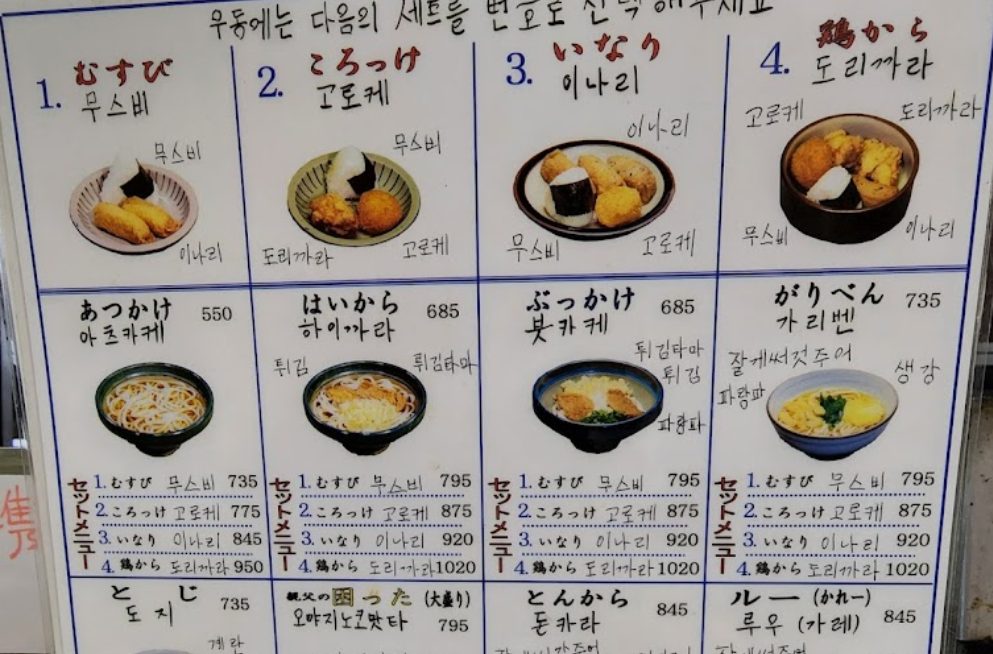 우동에는 다음의 세트를 번호로 선택해주세요
1. むすび
무스비
무스비
이나리
2. ころっけ
고로케
무스비
도리까라
고로케
3. いなり
이나리
이나리
무스비
고로케
4. 鶏から
도리까라
고로케
도리까라
무스비
이나리
あつかけ 550
아츠카케
セットメニュー
1. むすび 무스비 735
2. ころっけ 고로케 775
3. いなり 이나리 845
4. 鶏から 도리까라 950
はいから 685
하이까라
튀김
튀김타마
セットメニュー
1. むすび 무스비 795
2. ころっけ 고로케 875
3. いなり 이나리 920
4. 鶏から 도리까라 1020
ぶっかけ 685
붓카케
튀김타마
튀김
파랑파
セットメニュー
1. むすび 무스비 795
2. ころっけ 고로케 875
3. いなり 이나리 920
4. 鶏から 도리까라 1020
がりべん 735
가리벤
잘게써것주어
파랑파
생강
セットメニュー
1. むすび 무스비 795
2. ころっけ 고로케 875
3. いなり 이나리 920
4. 鶏から 도리까라 1020
とじ 735
도지
계란
親父の困った (大盛り)
오야지노코맛타 795
とんから 845
돈카라
ルー (かれー) 845
루우 (가레)